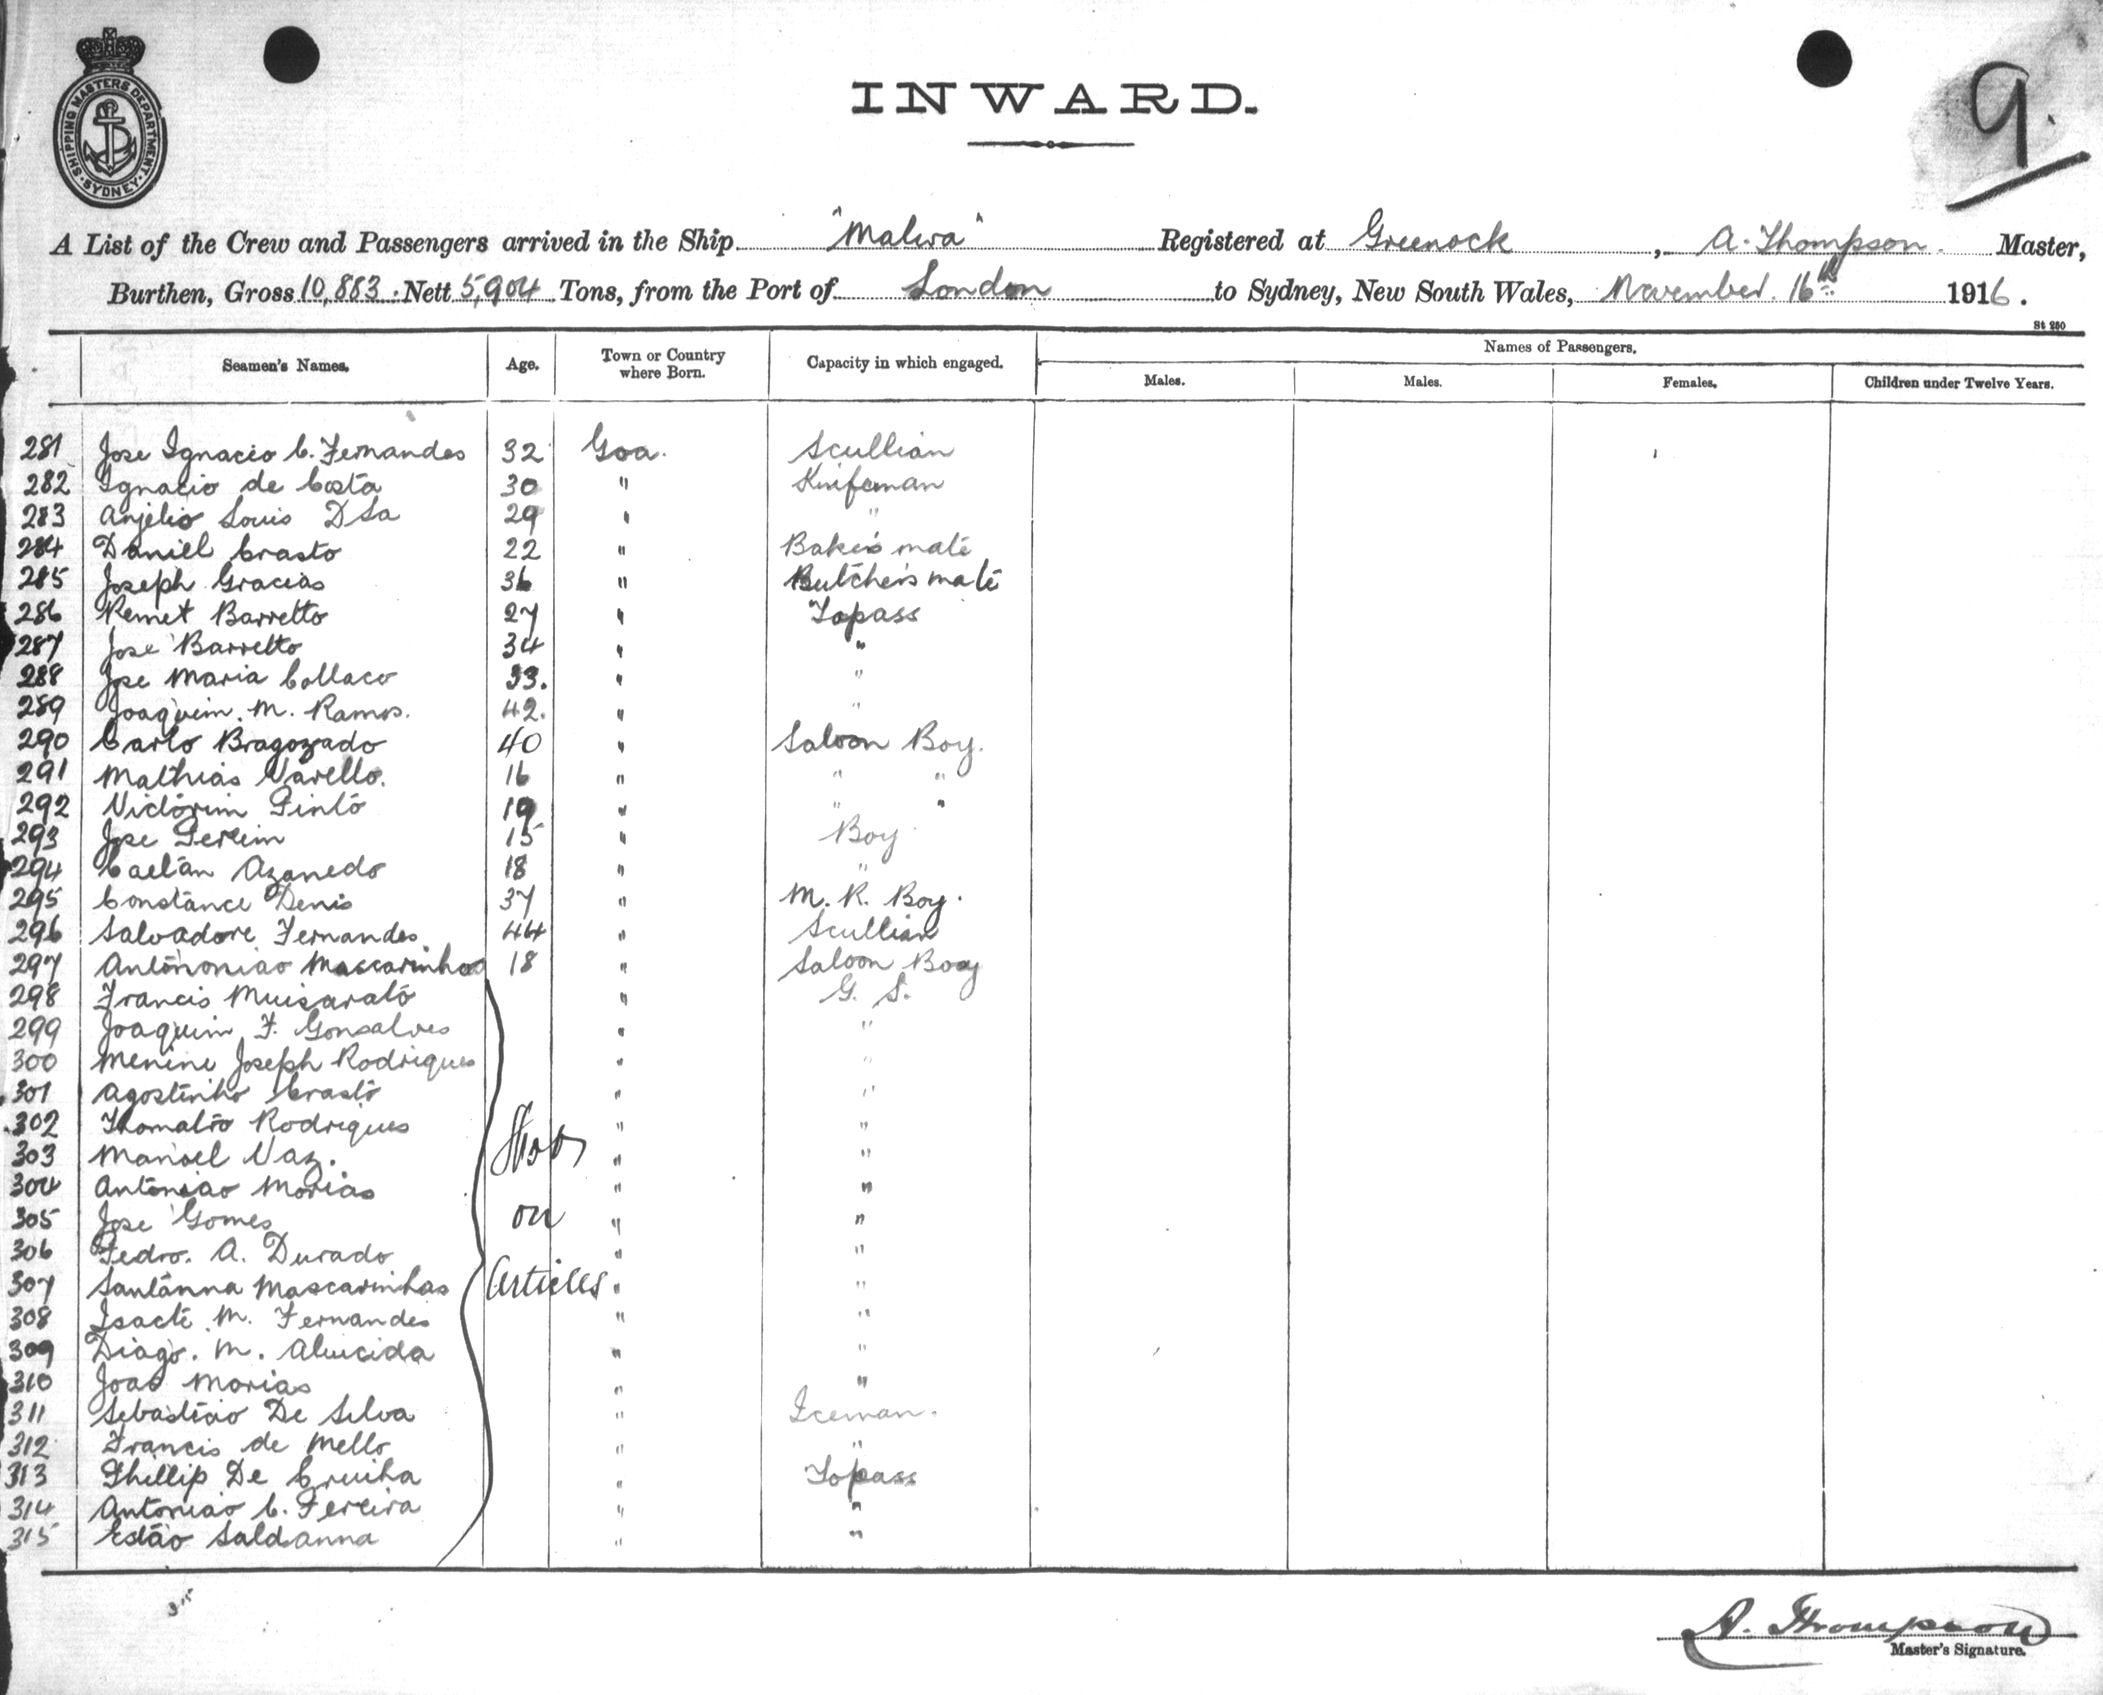 SHIPPING MASTERS DEPARTMENT. SYDNEY
INWARD.
9.
A List of the Crew and Passengers arrived in the Ship "Malwa" Registered at Greenock, A. Thompson. Master,
Burthen, Gross 10,883. Nett 5,904 Tons, from the Port of London to Sydney, New South Wales, November. 16th 1916.
St 250
Seamen's Names. Age. Town or Country where Born. Capacity in which engaged. Names of Passengers.
Males. Males. Females. Children under Twelve Years.
281 Jose Ignacio C. Fernandes 32 Goa. Scullian
282 Ignacio de Costa 30 " Knifeman
283 Anjelio Louis DSa 29 " "
284 Daniel Crasto 22 " Baker's mate
285 Joseph Gracias 36 " Butcher's mate
286 Remet Barretto 27 " Topass
287 Jose Barretto 34 " "
288 Jose Maria Collaco 33. " "
289 Joaquim. M. Ramos. 42. " "
290 Carlo Bragozado 40 " Saloon Boy.
291 Mathias Varello. 16 " " "
292 Victorim Pinto 19 " " "
293 Jose Pereim 15 " Boy
294 Caetan Azanedo 18 " "
295 Constance Denis 37 " M. R. Boy.
296 Salvadore Fernandes 44 " Scullian
297 Antononiao Mascarinhas 18 " Saloon Boy
298 Francis Muisarato " G. S.
299 Joaquim F. Gonsalves " "
300 Menine Joseph Rodrigues " "
301 Agostinho Crasto " "
302 Thomatro Rodrigues " "
303 Manoel Vaz. " "
304 Antoniao Morias " "
305 Jose Gomes on " "
306 Pedro. A. Durado " "
307 Santanna Mascarinhas Articles " "
308 Isacte M. Fernandes " "
309 Diago. M. Almeida " "
310 Joao Morias " "
311 Sebastiao De Silva " Iceman.
312 Francis de Mello " "
313 Phillip De Cruiha " Topass
314 Antoniao C. Pereira " "
315 Estao Saldanna " "
315
A. Thompson
Master's Signature.